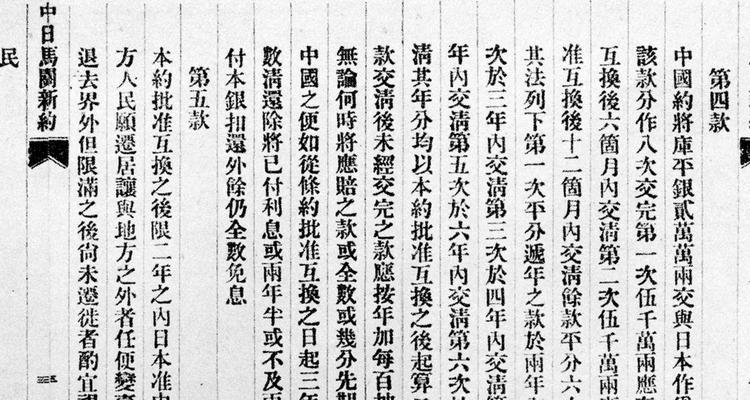 第四款
中國約將庫平銀貳萬萬兩交與日本作
該款分作八次交完第一次伍千萬兩應
互換後六箇月內交清第二次伍千萬兩
准互換後十二箇月內交清餘款平分六
其法列下第一次平分遞年之款於兩年
次於三年內交清第三次於四年內交清
年內交清第五次於六年內交清第六次
清其年分均以本約批准互換之後起算
款交清後未經交完之款應按年加每百抽
無論何時將應賠之款或全數或幾分先期
中國之便如從條約批准互換之日起三年
數清還除將已付利息或兩年半或不及兩
付本銀扣還外餘仍全數免息
第五款
本約批准互換之後限二年之內日本准中
方人民願遷居讓與地方之外者任便變賣
退去界外但限滿之後尙未遷徙者酌宜視
中日馬關新約
三
民